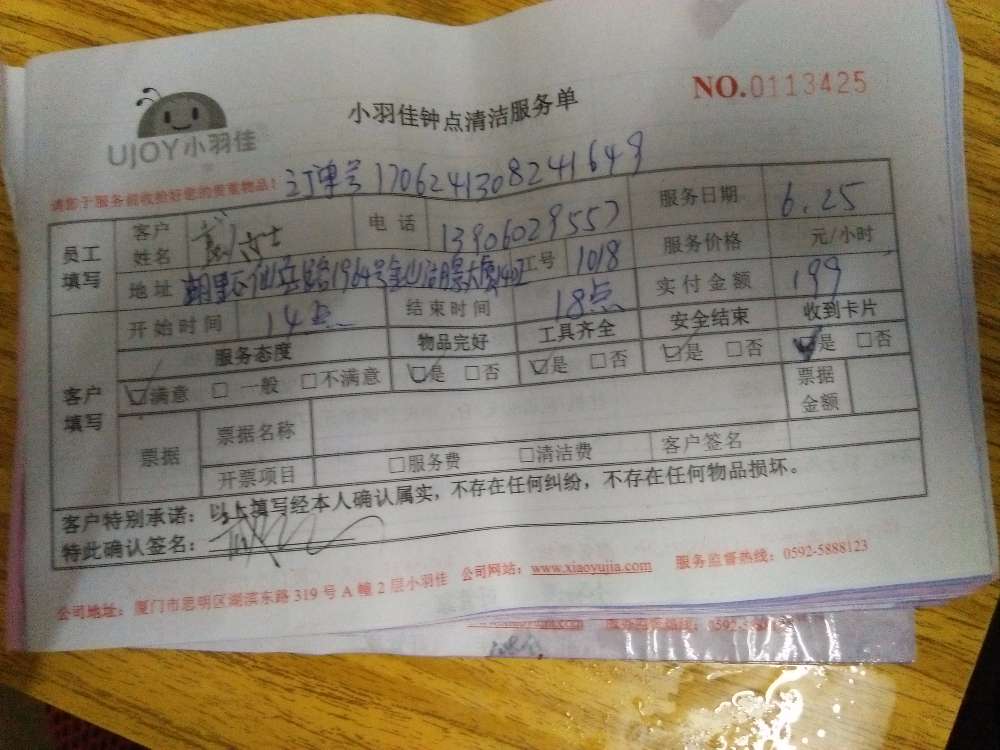 UJOY小羽佳
小羽佳钟点清洁服务单
NO.0113425
请您于服务前收拾好您的贵重物品!
订单号 1706241308241649
员工填写 客户姓名 女士 电话 13906029557 服务日期 6.25
地址 湖里区仙岳路1964号金山 工号 1018 服务价格 元/小时
开始时间 14点 结束时间 18点 实付金额 199
客户填写 服务态度 物品完好 工具齐全 安全结束 收到卡片
☑满意 □一般 □不满意 ☑是 □否 ☑是 □否 ☑是 □否 ☑是 □否
票据 票据名称 票据金额
开票项目 □服务费 □清洁费 客户签名
客户特别承诺：以上填写经本人确认属实，不存在任何纠纷，不存在任何物品损坏。
特此确认签名：
公司地址：厦门市思明区湖滨东路319号A幢2层小羽佳 公司网站：www.xiaoyujia.com 服务监督热线：0592-5888123